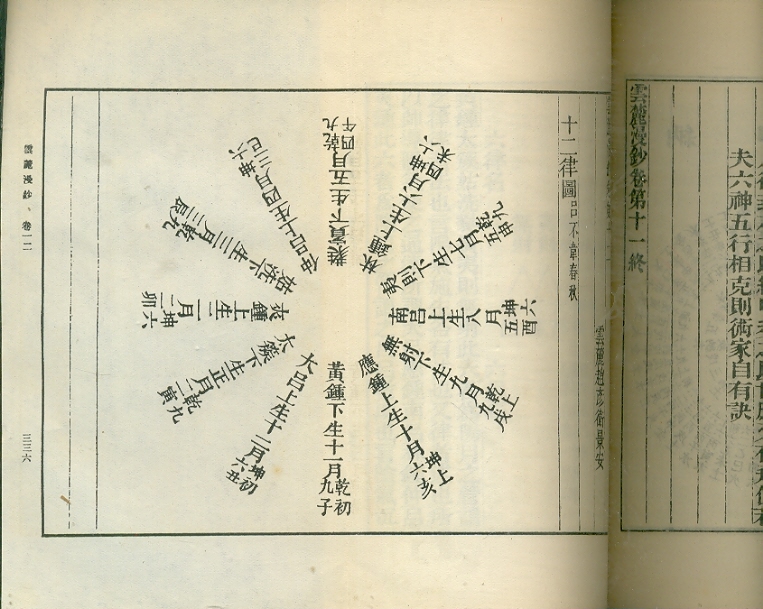 夫六神五行相克則術家自有訣
雲麓漫鈔卷第十一終
雲麓趙彥衛景安
十二律圖呂不韋春秋
黃鍾下生十一月乾初九子
大呂上生十二月坤初六丑
太簇下生正月乾二九寅
夾鍾上生二月坤二六卯
姑洗下生三月乾三九辰
仲呂上生四月坤三六巳
蕤賓下生五月乾四九午
林鍾上生六月坤四六未
夷則下生七月乾五九申
南呂上生八月坤五六酉
無射下生九月乾上九戌
應鍾上生十月坤上六亥
雲麓漫鈔 卷一二
三三六